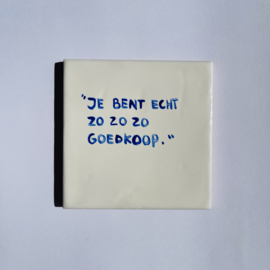 "JE BENT ECHT
ZO ZO ZO
GOEDKOOP."